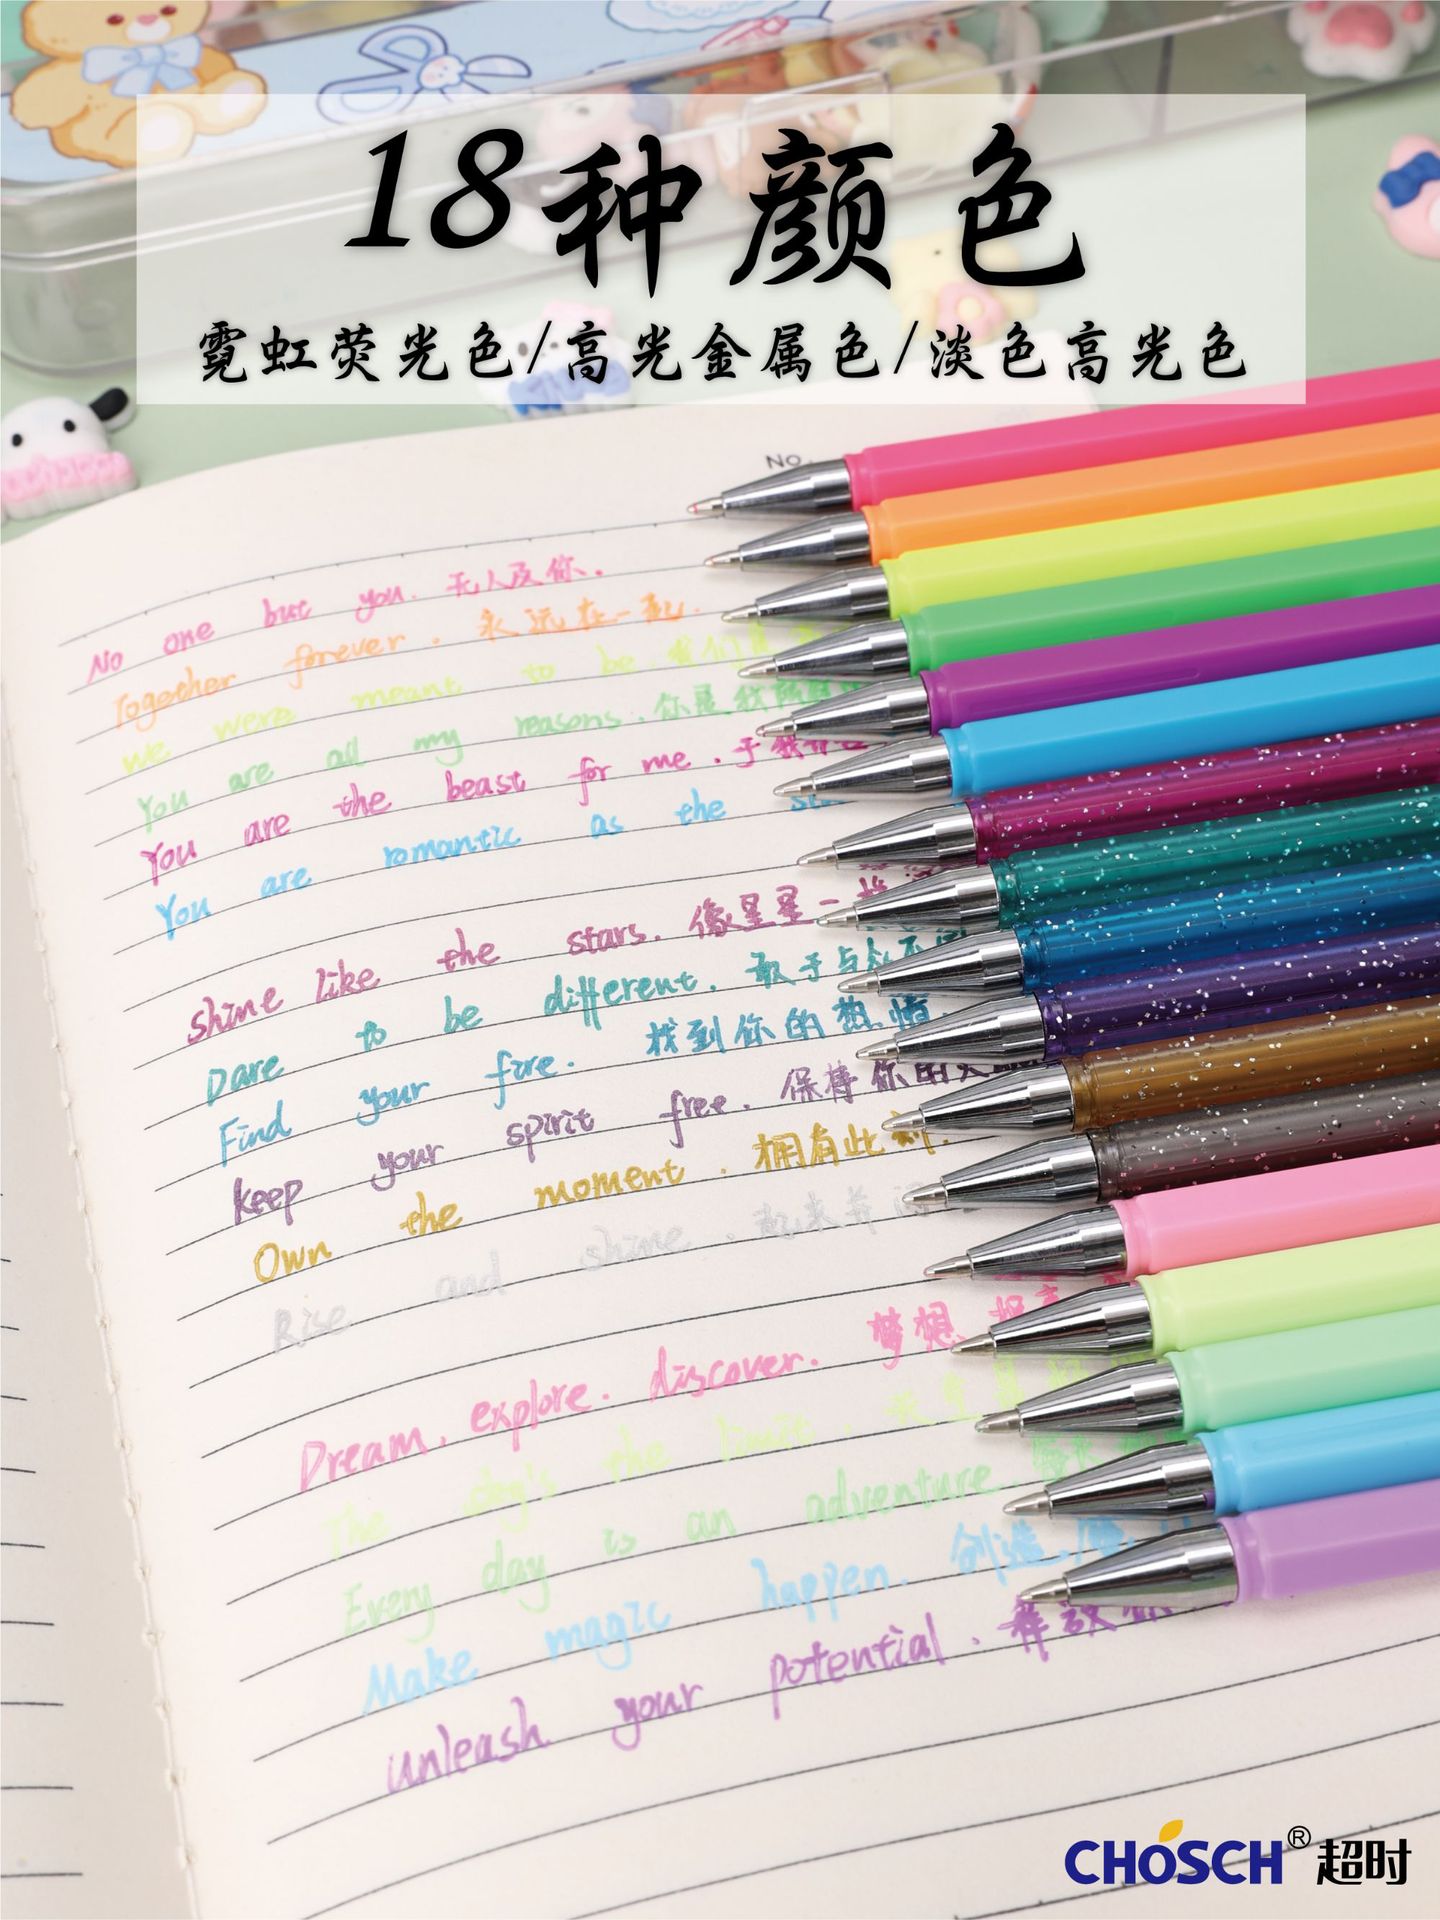 18种颜色
霓虹荧光色/高光金属色/淡色高光色
No.
No one but you. 无人及你.
Together forever. 永远在一起.
we were meant to be. 我们是
You are all my reasons. 你是我所
You are the beast for me. 于我
You are romantic as the
shine like the stars. 像星星一样
Dare to be different. 敢于与众不
Find your fire. 找到你的热情.
keep your spirit free. 保持你的
Own the moment. 拥有此刻.
Rise and shine. 起来并闪
Dream. explore. discover. 梦想.
The day's the limit. 天空是
Every day is an adventure.
Make magic happen. 创造
unleash your potential. 释放你
CHOSCH® 超时